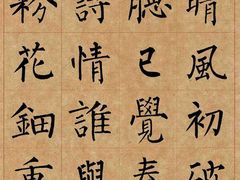 晴風初破
腮已覺春
詩情誰與
粉花鈿重